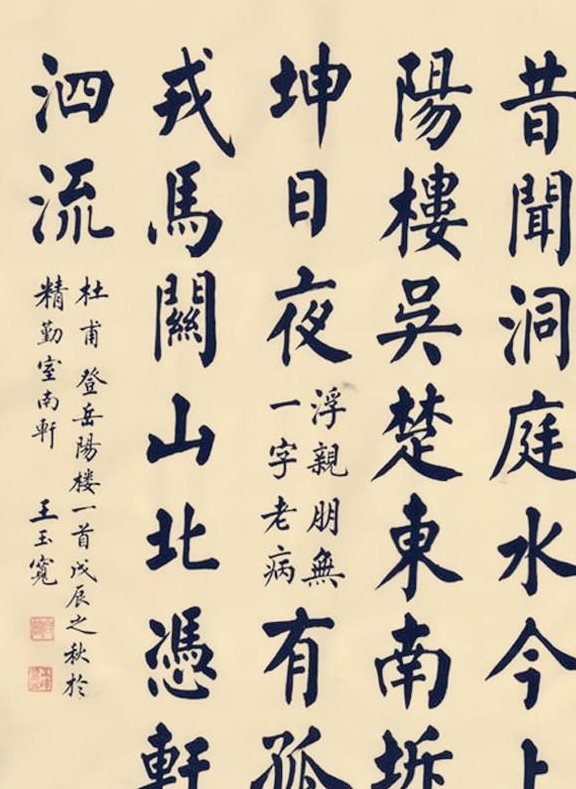 昔聞洞庭水今上
陽樓吳楚東南坼
坤日夜
浮親朋無
一字老病
有孤
戎馬關山北憑軒
泗流
杜甫登岳陽楼一首戊辰之秋於
精勤室南軒 王玉寬